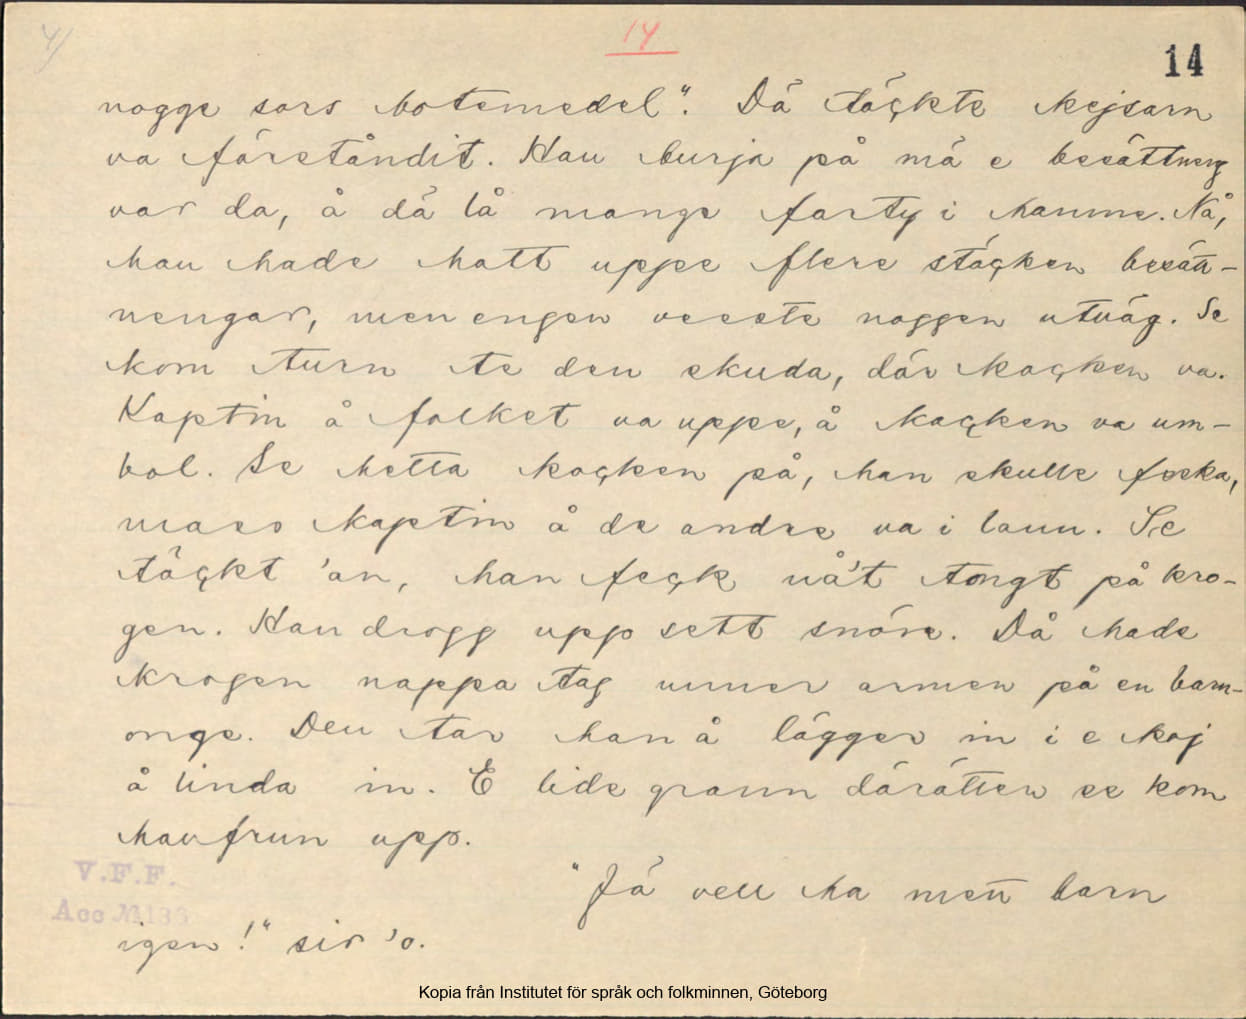 4)
14
14
nogge sors botemedel". Dä täçkte kejsarn
va färståndit. Han burja på mä e besättneng
var da, å dä lå mange farty i hamne. Nå,
han hade hatt uppe flere stäçken besätt-
nengar, men engen vesste noggen utväg. Se
kom turn te den skuda, där kaçken va.
Kaptin å falket va uppe, å kaçken va um-
bol. Se hetta koçken på, han skulle feska,
mass kaptin å de andre va i lann. Se
täçkt 'an, han feçk nå't tongt på kro-
gen. Han drogg upp sett snöre. Då hade
krogen nappa tag unner armen på en barn-
onge. Den tar han å lägger in i e koj
å linda in. E lide grann därätter se kom
havfrun upp.
"Jä vell ha mett barn
igen!" sir 'o.
V.F.F.
Acc № 136
Kopia från Institutet för språk och folkminnen, Göteborg